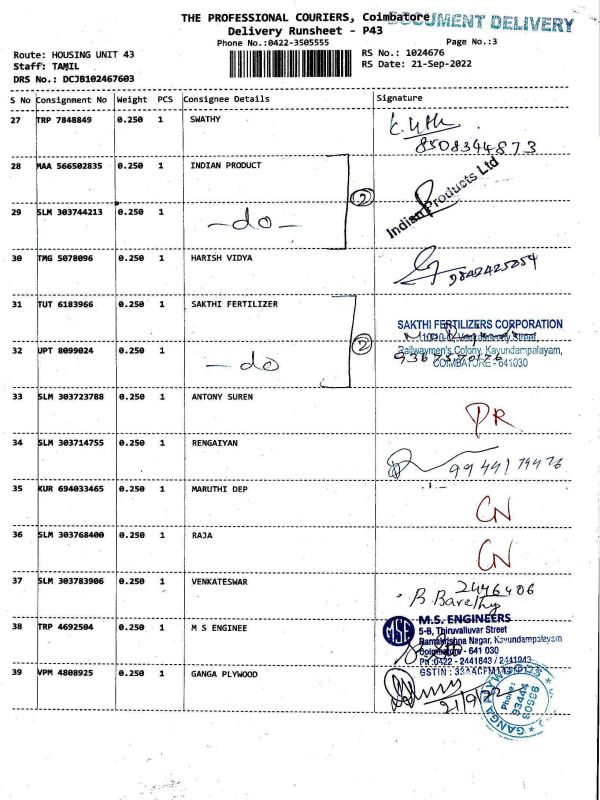 THE PROFESSIONAL COURIERS, Coimbatore
DOCUMENT DELIVERY
Delivery Runsheet - P43
Phone No.:0422-3505555
Page No.:3
Route: HOUSING UNIT 43
RS No.: 1024676
Staff: TAMIL
RS Date: 21-Sep-2022
DRS No.: DCJB102467603
S No Consignment No Weight PCS Consignee Details Signature
27 TRP 7848849 0.250 1 SWATHY
8508344873
28 MAA 566502835 0.250 1 INDIAN PRODUCT
2
Indian Products Ltd
29 SLM 303744213 0.250 1 -do-
30 TMG 5078096 0.250 1 HARISH VIDYA
9842425254
31 TUT 6183966 0.250 1 SAKTHI FERTILIZER
2
SAKTHI FERTILIZERS CORPORATION
Street,
Railwaymen's Colony, Kayundampalayam,
COIMBATORE - 641030
32 UPT 8099024 0.250 1 -do
33 SLM 303723788 0.250 1 ANTONY SUREN
PR
34 SLM 303714755 0.250 1 RENGAIYAN
9944174476
35 KUR 694033465 0.250 1 MARUTHI DEP
CN
36 SLM 303768400 0.250 1 RAJA
CN
37 SLM 303783906 0.250 1 VENKATESWAR
2446406
38 TRP 4692504 0.250 1 M S ENGINEE
MSE
M.S. ENGINEERS
5-B, Thiruvalluvar Street
Ramakrishna Nagar, Kavundampalayam
Coimbatore - 641 030
Ph :0422 - 2441843 / 2441943
GSTIN :
39 VPM 4808925 0.250 1 GANGA PLYWOOD
21/9/22
GANGA PLYWOODS
Phone:
93444
80986